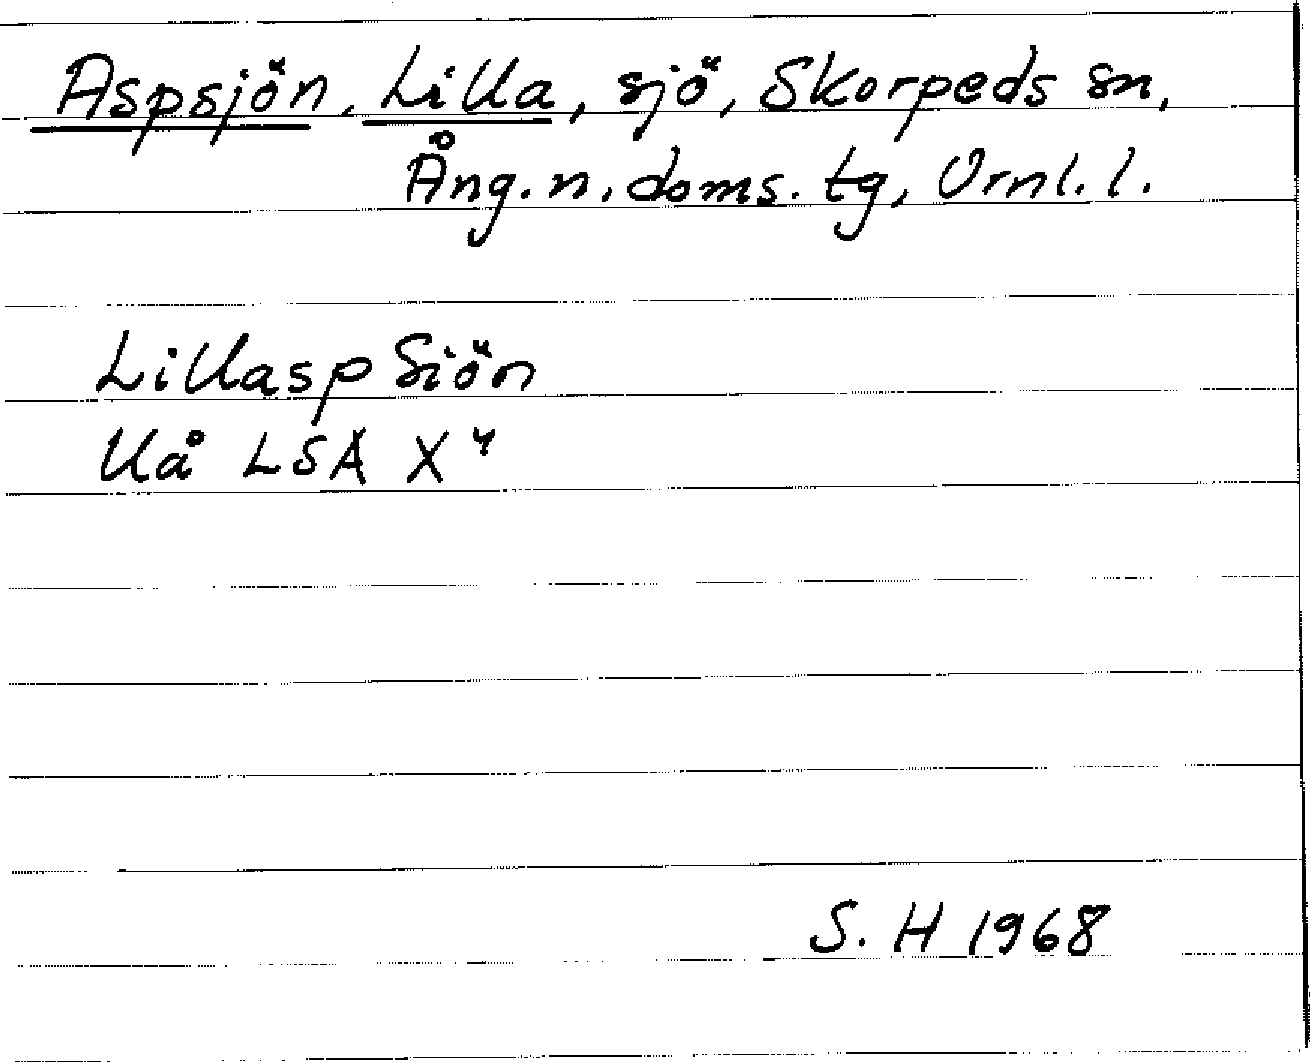 Aspsjön, Lilla, sjö, Skorpeds sn,
Ång. n. doms. tg, Vrnl. l.
Lillasp Siön
Uå LSA X 4
S. H 1968